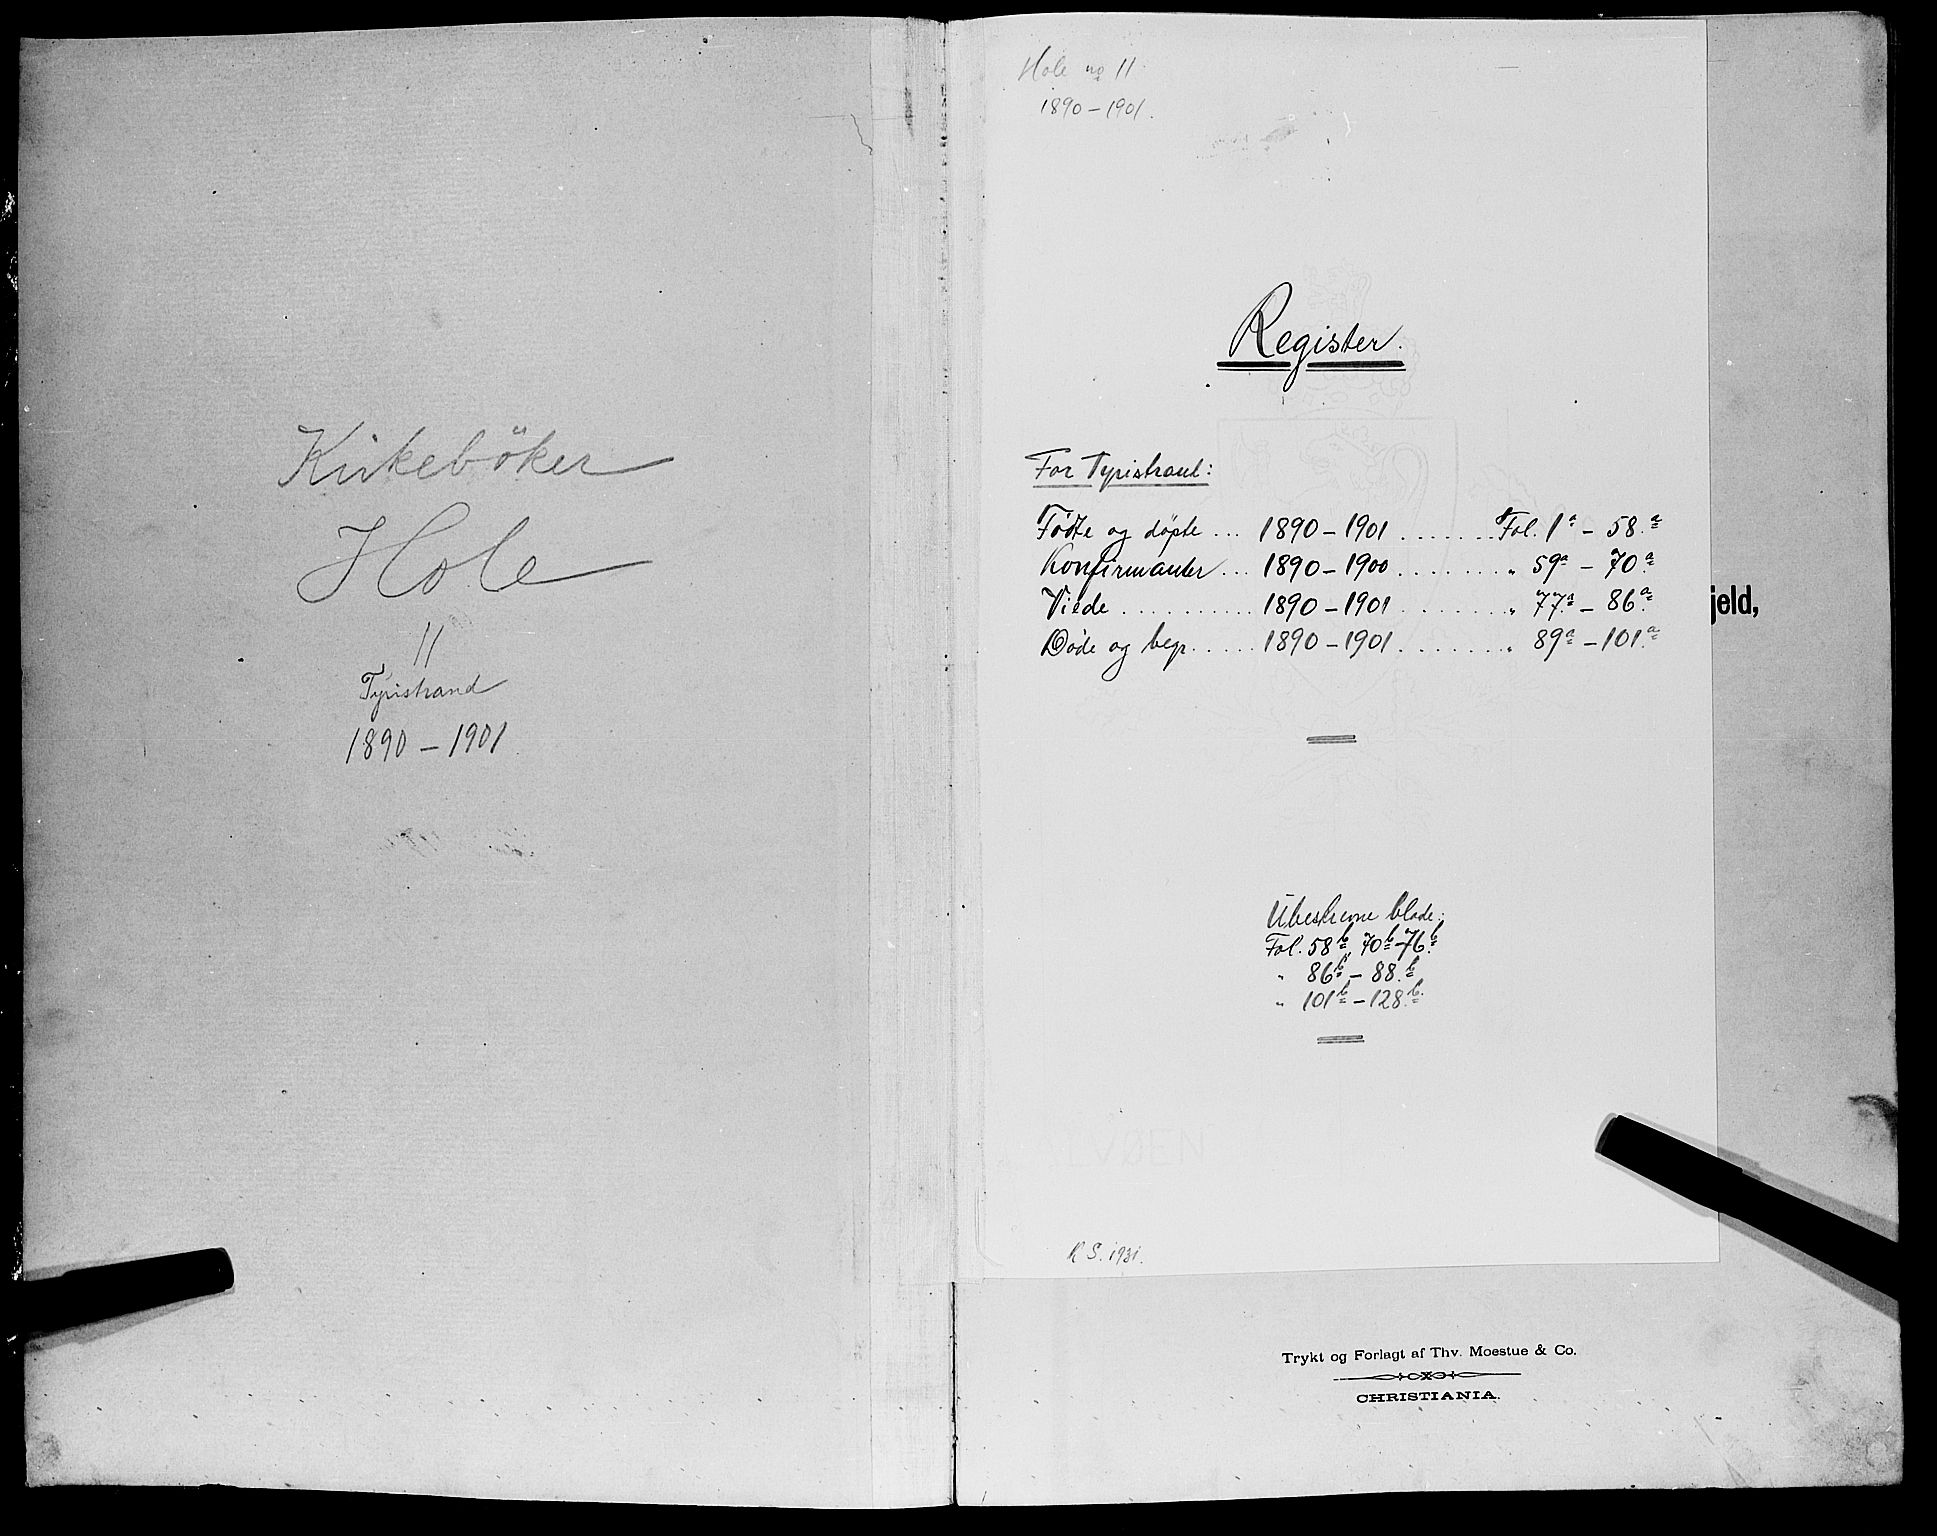 Kirkeböker
Hole
11
Tyristrand
1890 – 1901
Hole no 11
1890 – 1901.
Register.
For Tyristrand:
Fødte og døpte ... 1890 – 1901 ....... Fol. 1a – 58a
Konfirmanter ... 1890 – 1900 ....... " 59a – 70a
Viede .......... 1890 – 1901 ....... " 77a – 86a
Døde og begr. ..... 1890 – 1901 ....... " 89a – 101a
jeld,
Ubeskrevne blade:
Fol. 58b, 70b – 76b
" 86b – 88b
" 101b – 128b
ALVØEN
R S. 1931.
Trykt og Forlagt af Thv. Moestue & Co.
CHRISTIANIA.